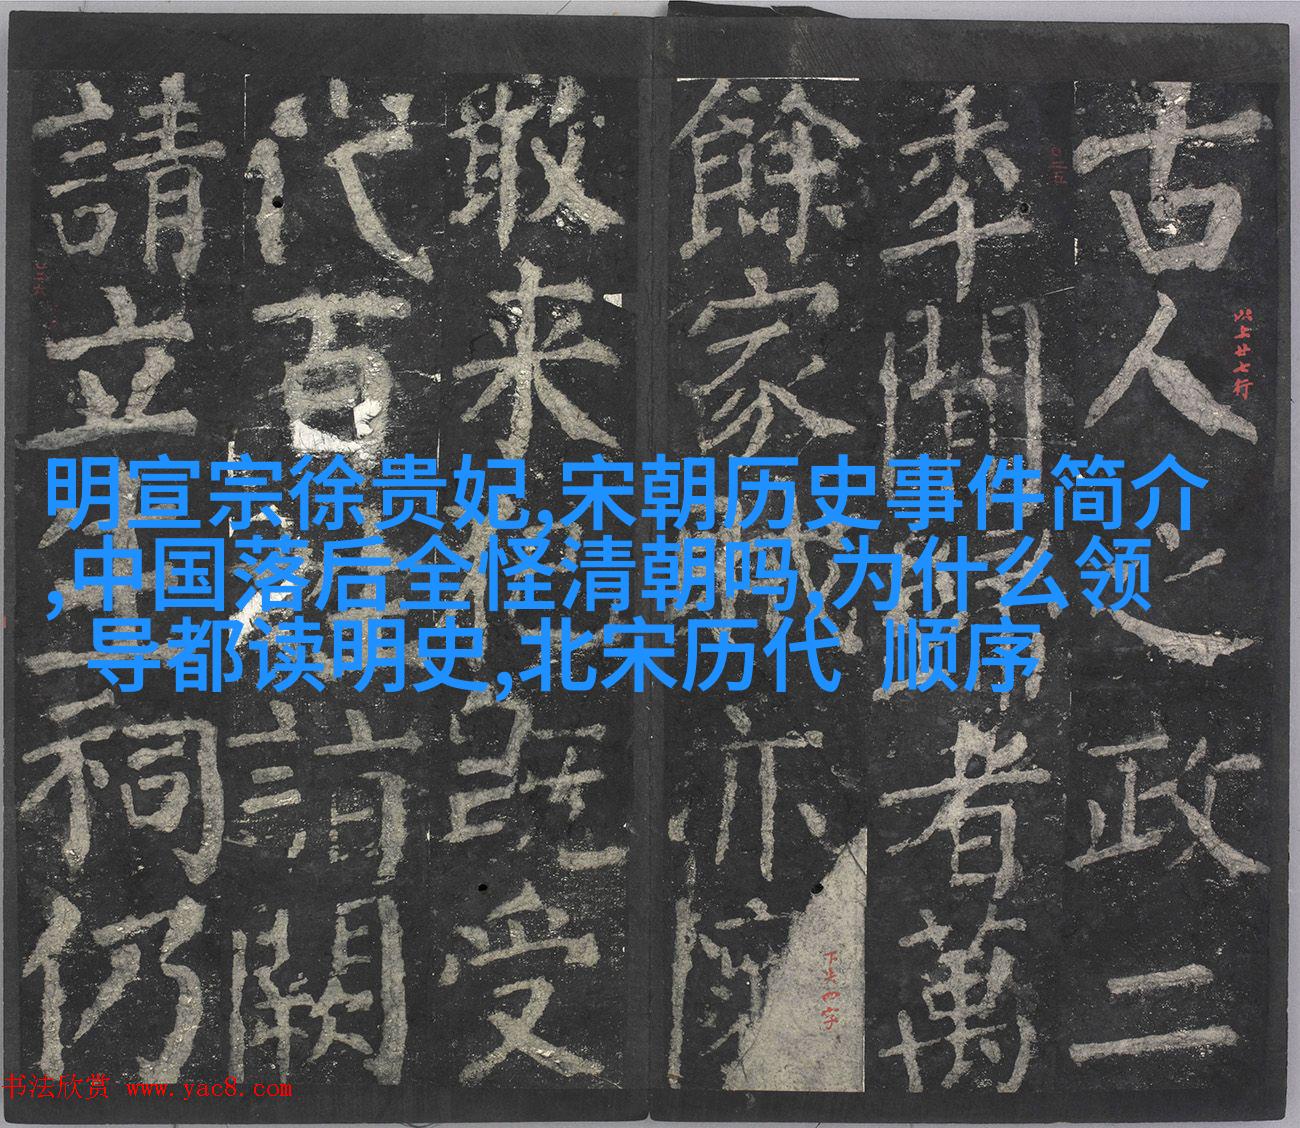 古人之政二
以上廿七行
年聞者萬
餘家亦
敢来既受
代百闕
請立生祠仍
明宣宗徐贵妃,宋朝历史事件简介
,中国落后全怪清朝吗,为什么领
导都读明史,北宋历代 顺序
书法欣赏 www.yac8.com